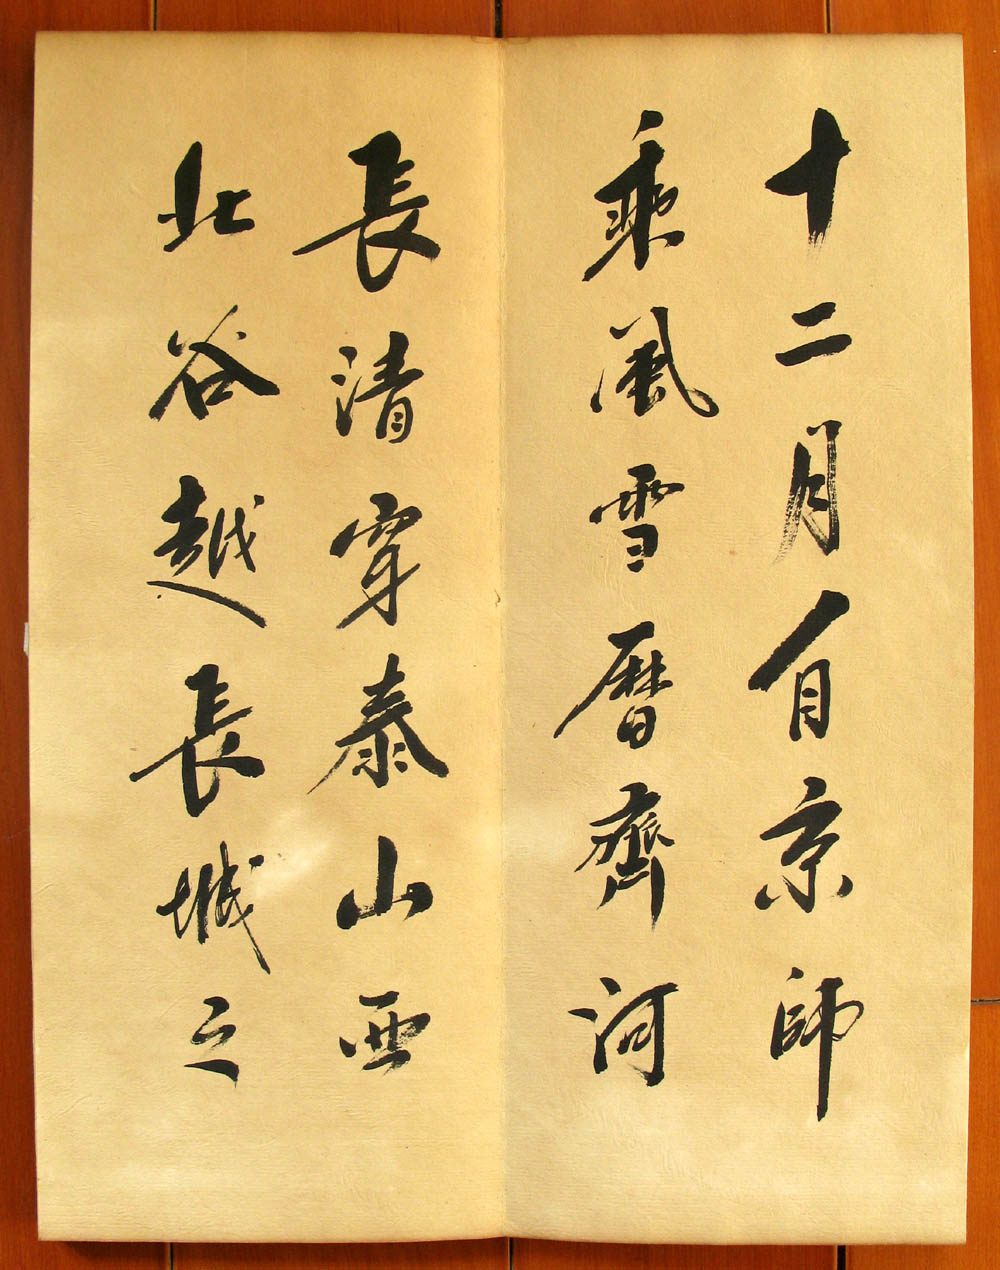 十二月自京師
乘風雪曆齊河
長清穿泰山西
北谷越長城之